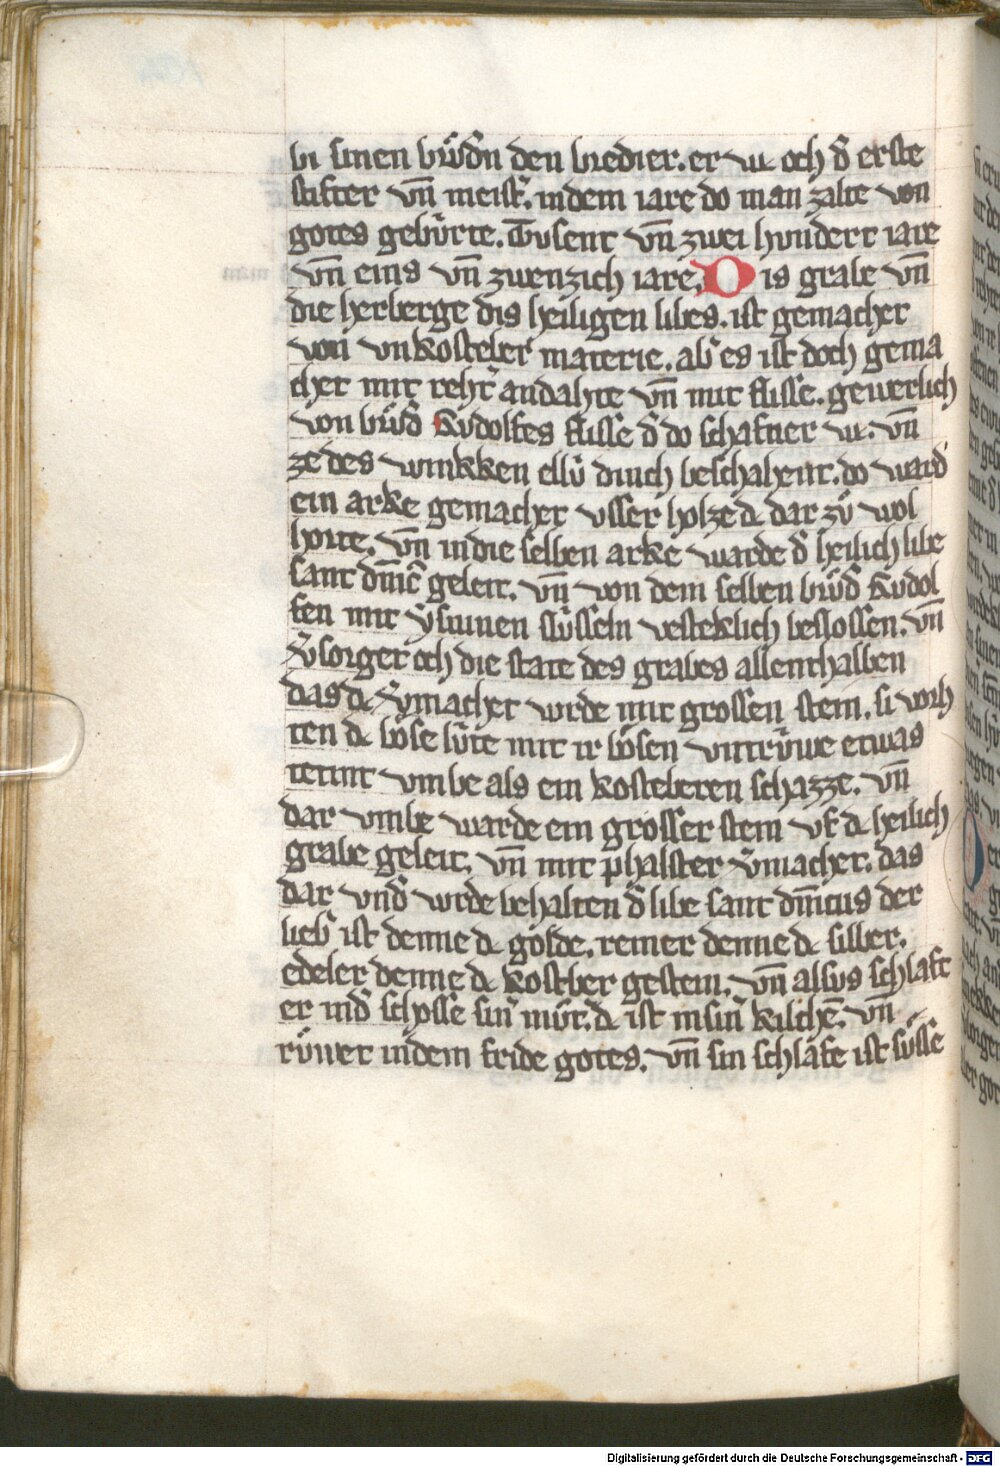 bi sinen brůdn den bredier. er w̄. och d̄ erste
stifter vn̄ meist̄. indem iare do man zalte von
gotes gebúrte. Tusent vn̄ zwei hundert iare
vn̄ eins vn̄ zwenzich iare. Dis grabe vn̄
die herberge dis heiligen libes. ist gemachet
von vnkosteber materie. ab̄ es ist doch gema
chet mit reht̄ andahte vn̄ mit flisse. gewerlich
von brůd̄ Růdolfes flisse d̄ do schafner w̄. vn̄
ze des winkken ellú dinch beschahent. do ward
ein arke gemachet vsser holze dc dar zů wol
horte. vn̄ in die selben arke warde d̄ heilich libe
sant dn̄ic̄ geleit. vn̄ von dem selben brůd̄ Rudol
fen mit ẏsininen slússeln vesteklich beslossen. vn̄
v̄sorget och die state des grabes allenthalben
das dc v̄machet wrde mit grossen stein. si vorh
ten dc bóse lúte mit ir bósen vntrúwe etwas
tetint vmbe als ein kosteberen schazze. vn̄
dar vmbe warde ein grosser stein vf dc heilich
grabe geleit. vn̄ mit phalster v̄machet. das
dar vnd̄ wrde behalten d̄ libe sant dn̄icus der
lieb̄ ist denne dc golde. reiner denne dc silber.
edeler denne dc kostber gestein. vn̄ alsus schlafet
er ind̄ schosse sin̄ můt̄. dc ist in sin̄ kilchē. vn̄
růwet in dem fride gotes. vn̄ sin schlafe ist sússe
Digitalisierung gefördert durch die Deutsche Forschungsgemeinschaft - DFG